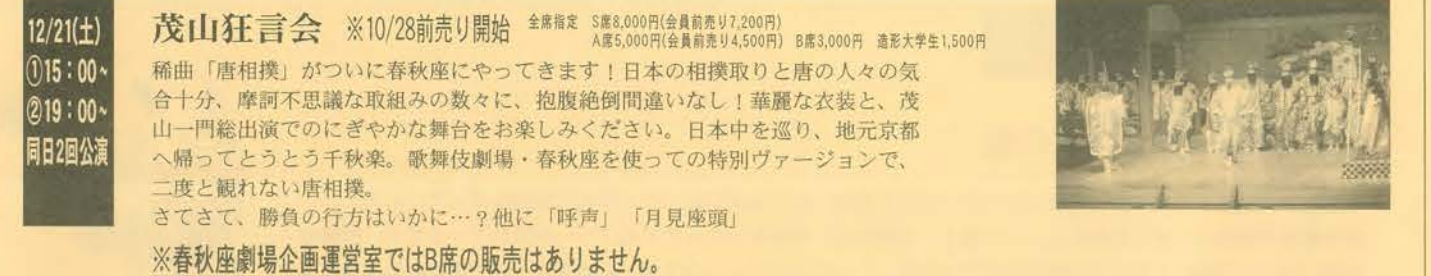 12/21(土)
①15：00~
②19：00~
同日2回公演
茂山狂言会 ※10/28前売り開始 全席指定 S席8,000円(会員前売り7,200円)
A席5,000円(会員前売り4,500円) B席3,000円 造形大学生1,500円
稀曲「唐相撲」がついに春秋座にやってきます！日本の相撲取りと唐の人々の気
合十分、摩訶不思議な取組みの数々に、抱腹絶倒間違いなし！華麗な衣装と、茂
山一門総出演でのにぎやかな舞台をお楽しみください。日本中を巡り、地元京都
へ帰ってとうとう千秋楽。歌舞伎劇場・春秋座を使っての特別ヴァージョンで、
二度と観れない唐相撲。
さてさて、勝負の行方はいかに…？他に「呼声」「月見座頭」
※春秋座劇場企画運営室ではB席の販売はありません。